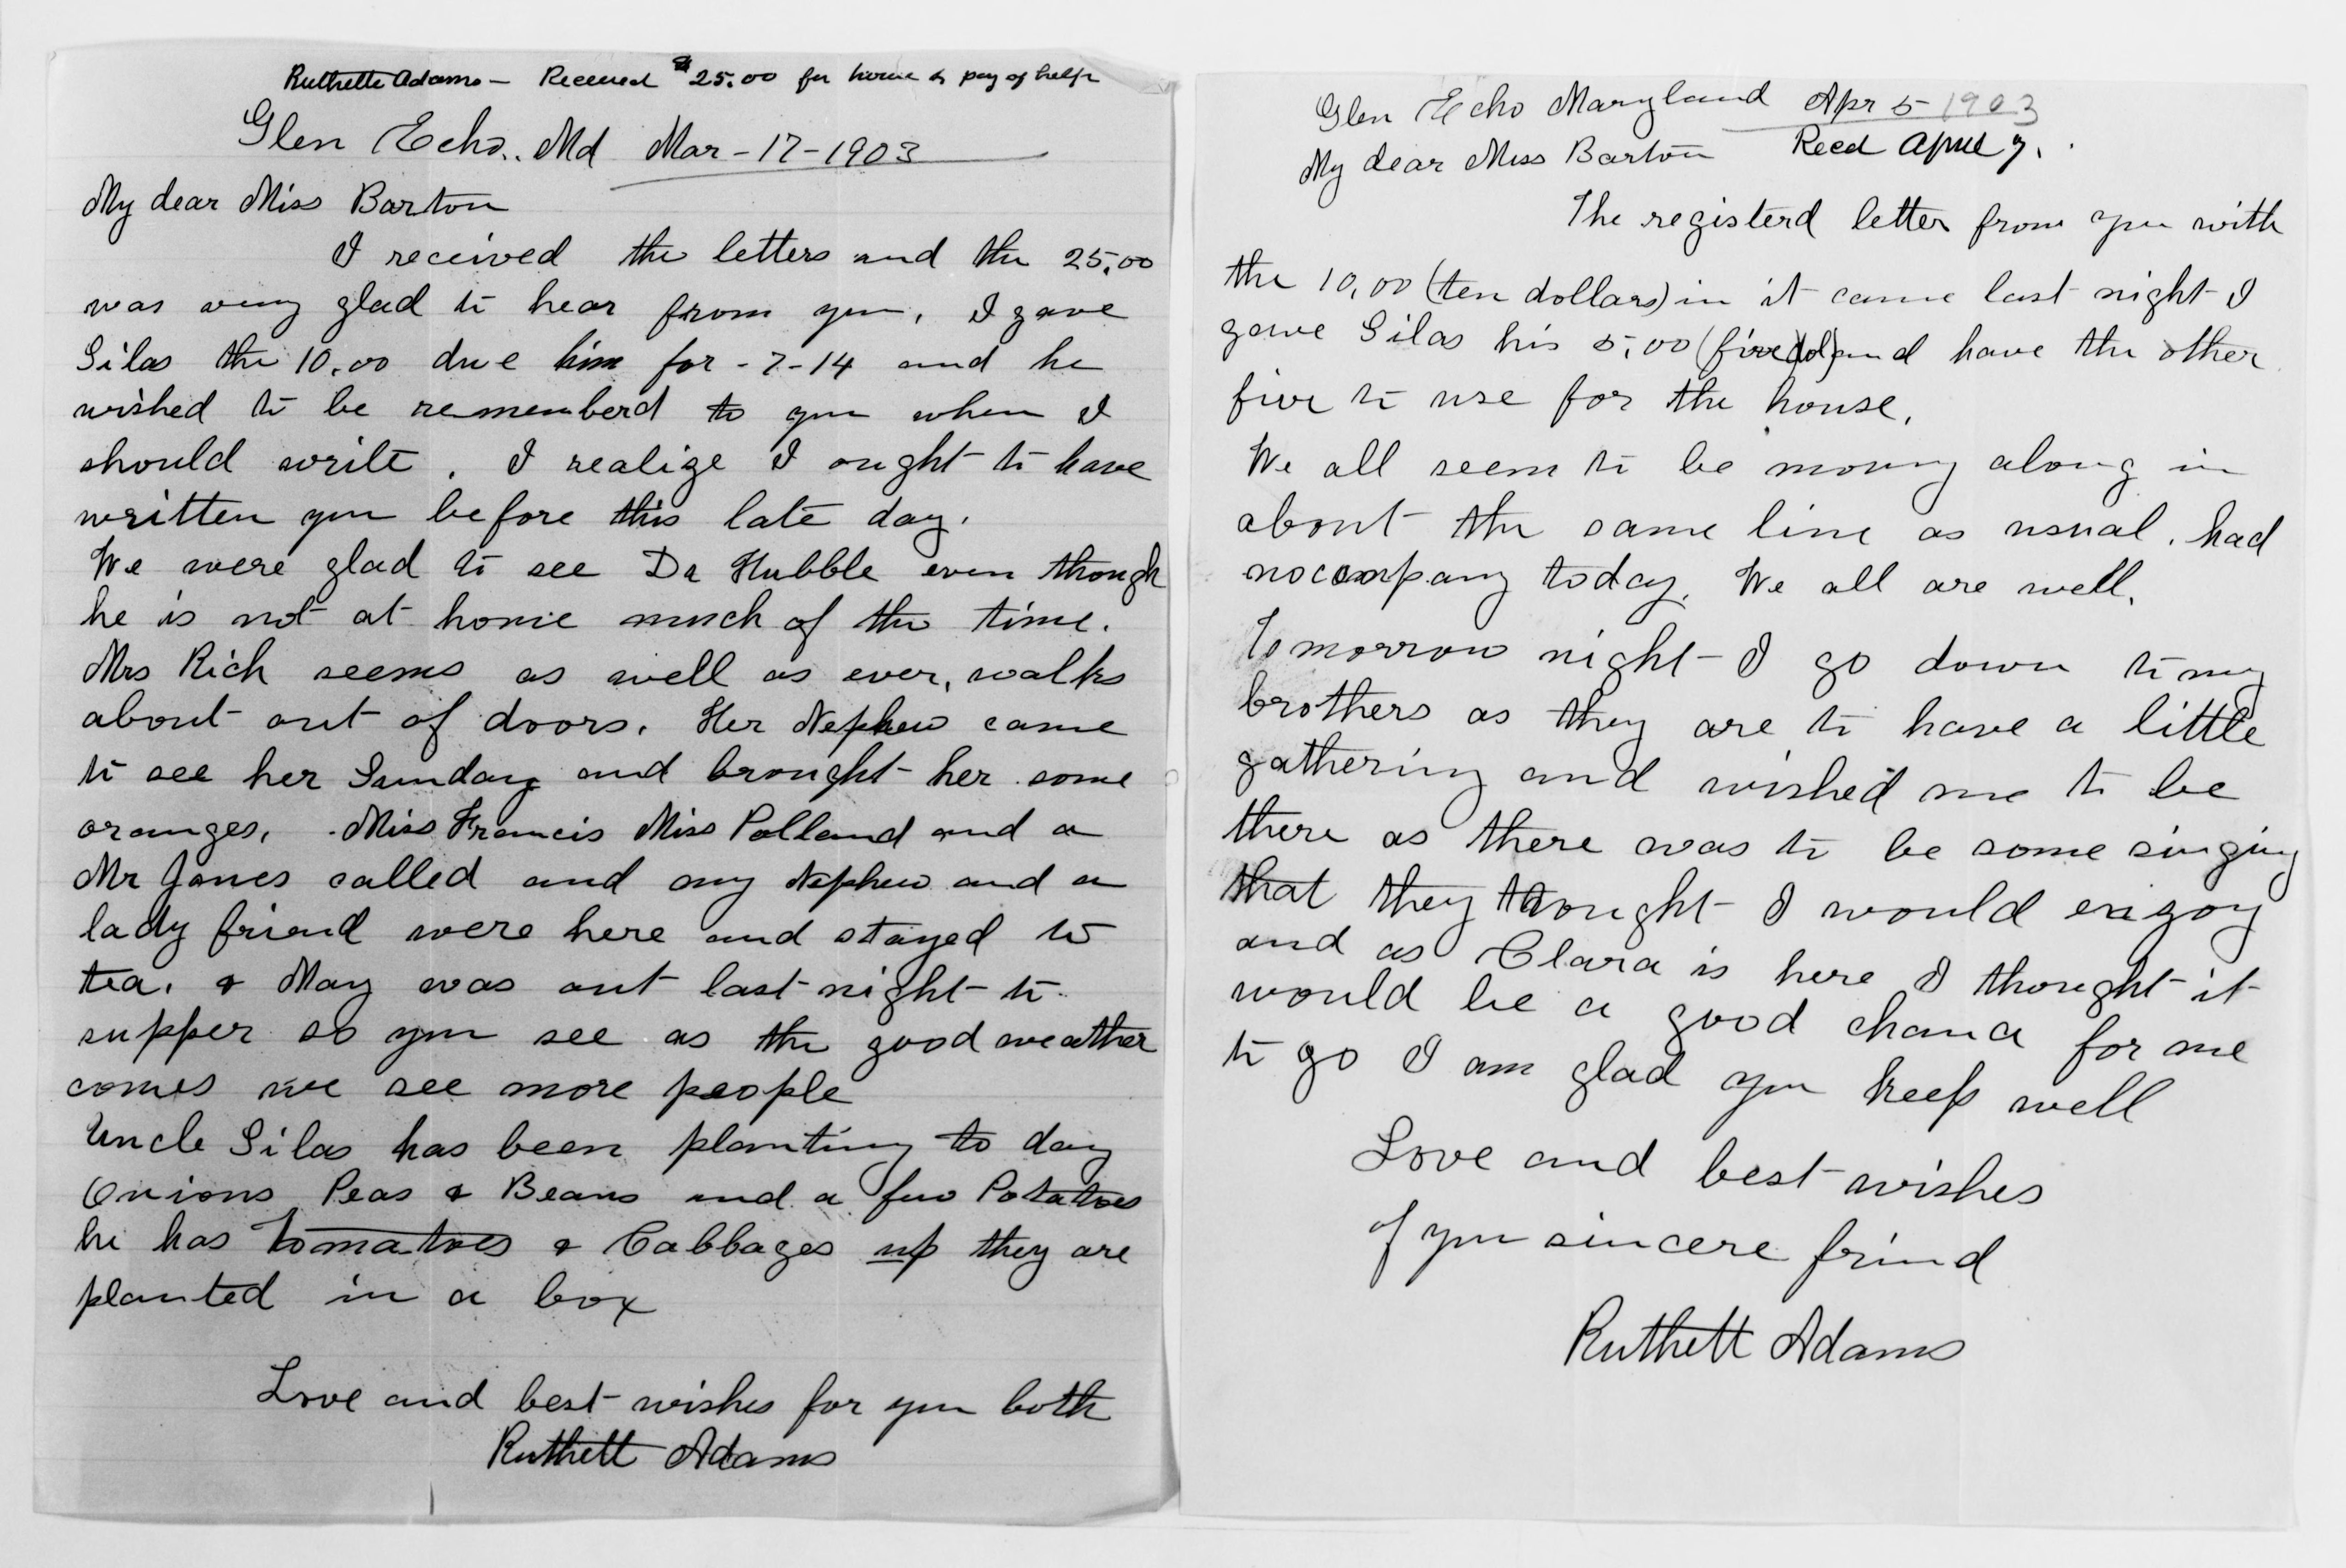 Ruthette Adams — Received $25.00 for house & pay of help
Glen Echo.. Md Mar-17-1903
My dear Miss Barton
I received the letters and the 25.00
was very glad to hear from you. I gave
Silas the 10.00 due him for -7-14 and he
wished to be rememberd to you when I
should write. I realize I ought to have
written you before this late day.
We were glad to see Dr Hubble even though
he is not at home much of the time.
Mrs Rich seems as well as ever, walks
about out of doors. Her Nephew came
to see her Sunday and brought her some
oranges. Miss Francis Miss Polland and a
Mr Jones called and my Nephew and a
lady friend were here and stayed to
tea. & May was out last night to
supper so you see as the good weather
comes we see more people
Uncle Silas has been planting to day
Onions Peas & Beans and a few Potatoes
he has Tomatoes & Cabbages up they are
planted in a box
Love and best wishes for you both
Ruthett Adams
Glen Echo Maryland Apr 5 1903
My dear Miss Barton Recd April 7.
The registerd letter from you with
the 10,00 (ten dollars) in it came last night I
gave Silas his 5,00 (five dol) and have the other
five to use for the house.
We all seem to be moving along in
about the same line as usual. had
no company today. We all are well.
Tomorrow night I go down to my
brothers as they are to have a little
gathering and wished me to be
there as there was to be some singing
that they thought I would enjoy
and as Clara is here I thought it
would be a good chance for me
to go I am glad you keep well
Love and best wishes
of your sincere frind
Ruthett Adams